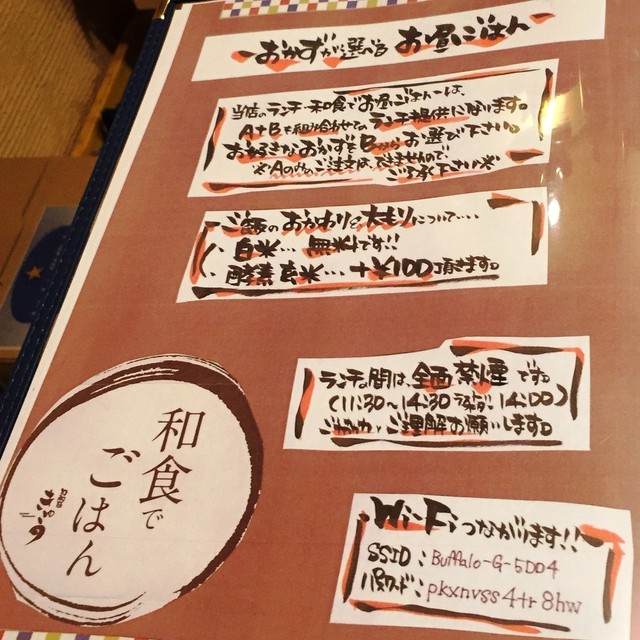 おかずが選べる お昼ごはん
当店のランチ・和食でお昼ごはんは、
A+Bを組み合わせてのランチ提供になります。
お好きなおかずをBからお選び下さい。
※Aのみのご注文は、できませんので、
ご了承下さい※
ご飯のおかわりと大もりについて・・・
・白米・・・無料です!!
・酵素玄米・・・+¥100頂きます。
ランチの間は、全面禁煙です。
(11:30〜14:30 ラストオーダー 14:00)
ご理解お願いします。
Wi-Fiつながります!!
SSID:Buffalo-G-5DD4
パスワード:pkxnvss4tr8hw
和食で
ごはん